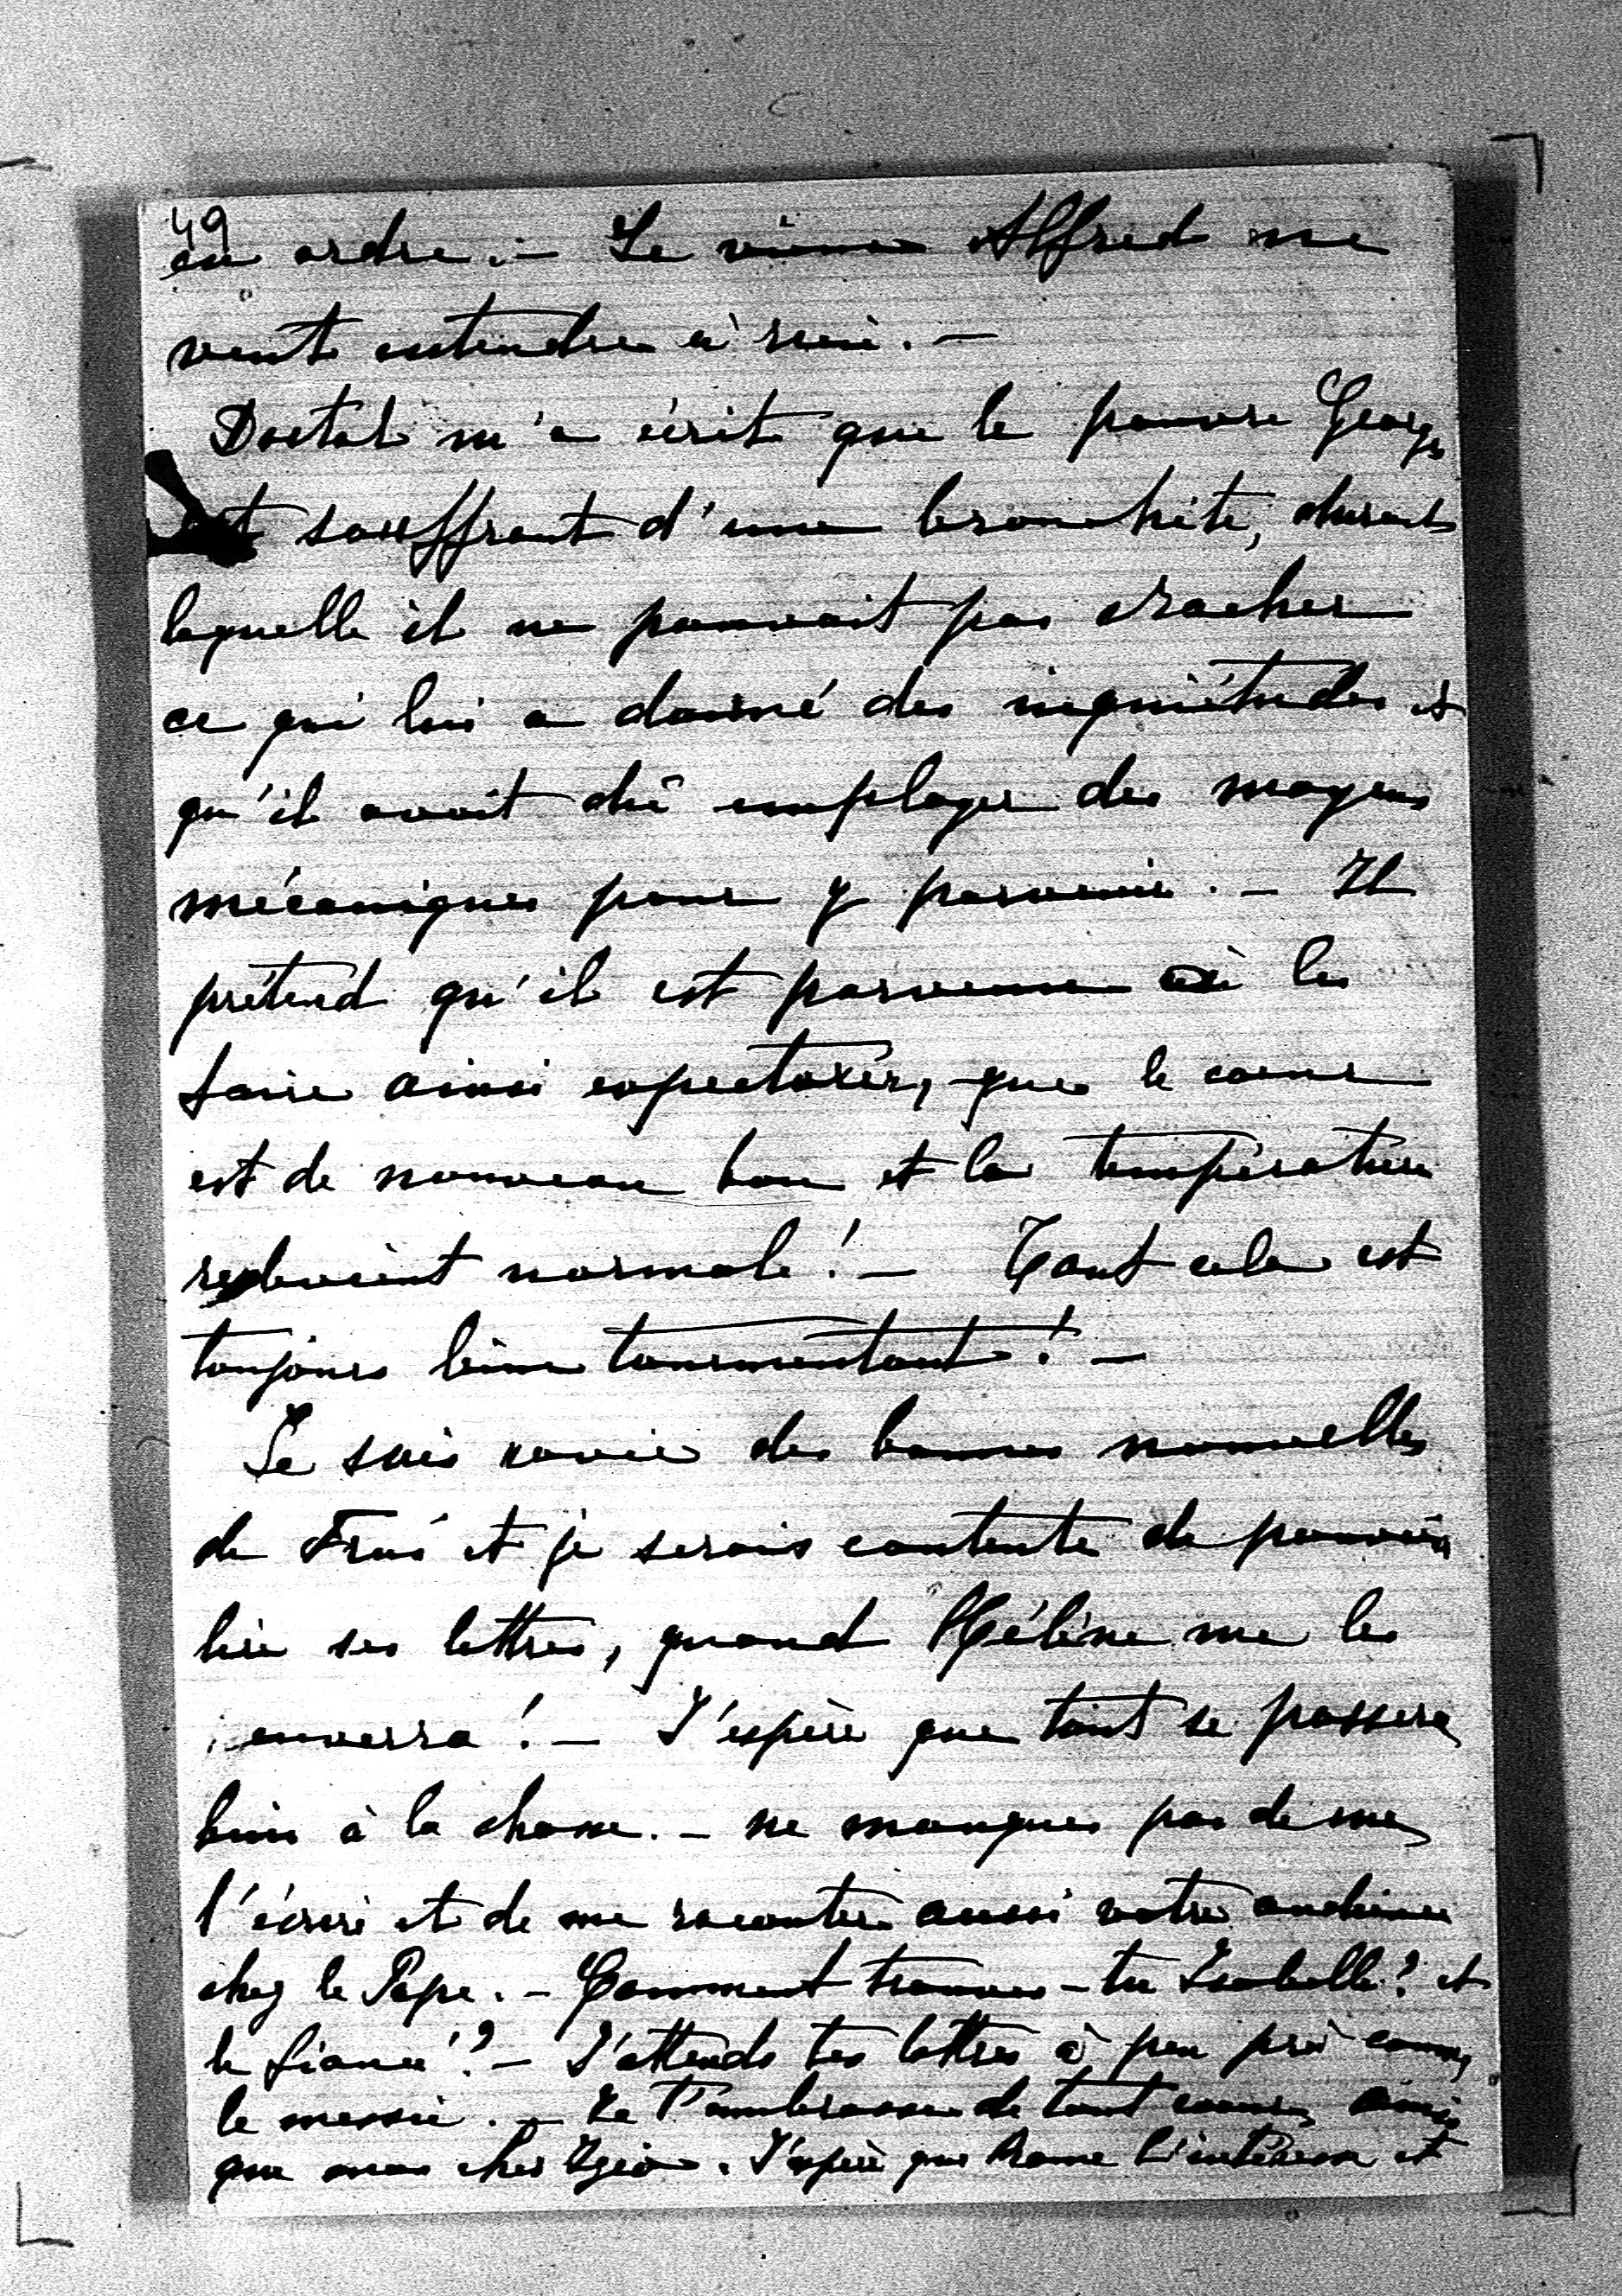 49
en ordre. – Le vieux Alfred ne
veut entendre à rien. –
Dostal m'a écrit que le pauvre Georges
est souffrant d'une bronchite, durant
laquelle il ne pouvait pas cracher
ce qui lui a donné des inquiétudes et
qu'il avait dû employer des moyens
mécaniques pour y parvenir. – Il
prétend qu'il est parvenu à le
faire ainsi expectorer, que le coeur
est de nouveau bon et la température
redevient normale! – Tout cela est
toujours bien tourmentant! –
Je suis ravie des bonnes nouvelles
de et je serais contente de pouvoir
lire ses lettres, quand Hélène me les
enverra! – J'espère que tout se passera
bien à la chasse. – ne manques pas de me
l'écrire et de me raconter aussi votre audience
chez le Pape. – Comment trouves-tu Isabelle? et
le fiancé? – J'attends tes lettres à peu près comme
le messie. – Je t'embrasse de tout coeur, ainsi
que mon cher . J'espère que Rome l'intéresse et